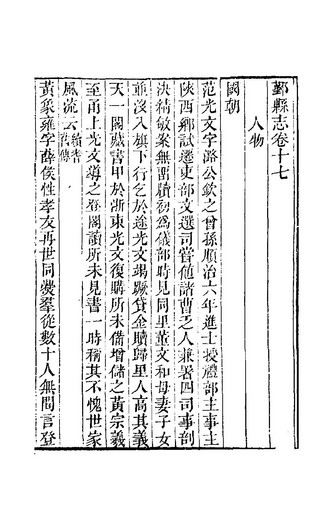 鄞縣志卷十七
人物
國朝
范光文字潞公欽之曾孫順治六年進士授禮部主事主
陝西鄉試遷吏部文選司嘗値諸曹乏人兼署四司事剖
決精敏案無畱牘初爲儀部時見同里董文和母妻子女
並沒入旗下行乞於途光文竭蹶貸金贖歸里人高其義
天一閣藏書甲於浙東光文復購所未備增儲之黃宗羲
至甬上光文導之登閣讀所未見書一時稱其不愧世家
風流云續耆舊傳
黃象雍字薛侯性孝友再世同爨羣從數十人無間言登